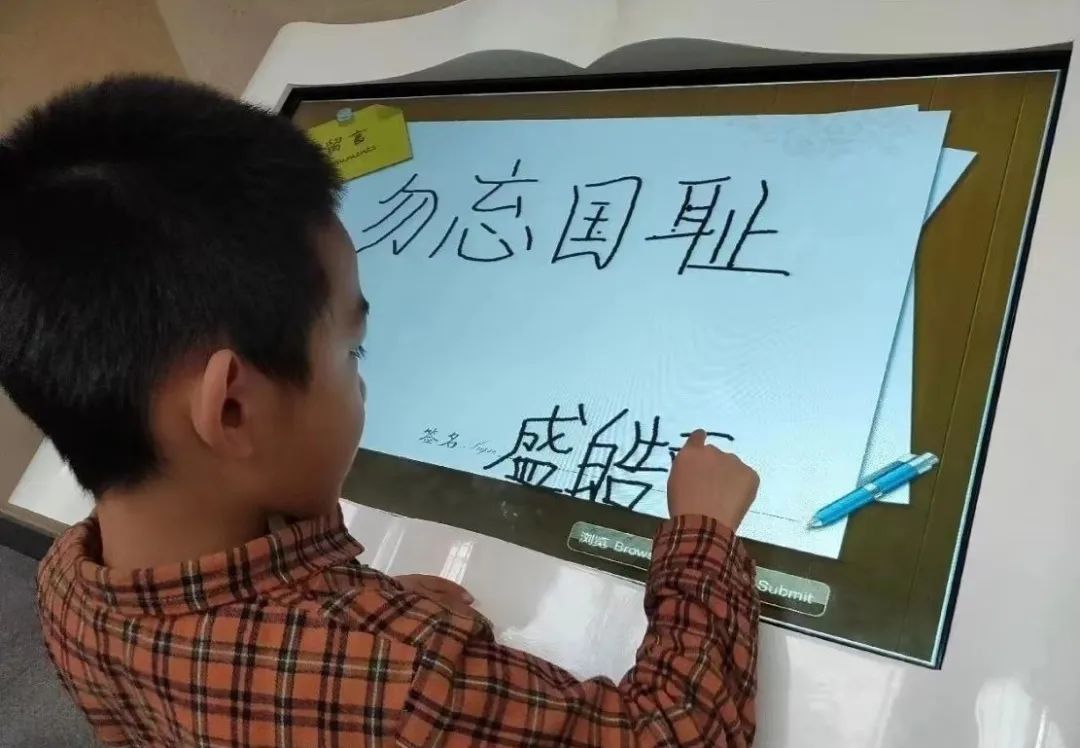 留言
勿忘国耻
签名
盛皓
浏览 Brows
Submit